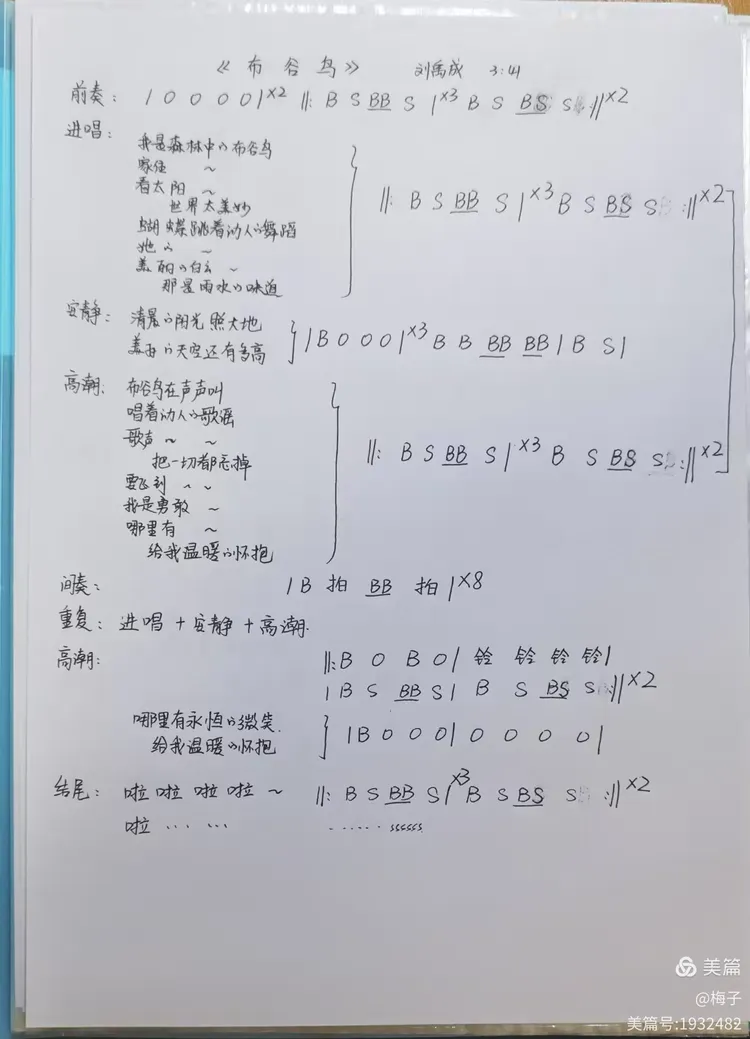 《布谷鸟》 刘禹成 3:41
前奏: | 0 0 0 0 |×2 ‖: B S BB S |×3 B S BS S :‖×2
进唱:
我是森林中の布谷鸟
家住 ~
看太阳 ~
世界太美妙
‖: B S BB S |×3 B S BS S :‖×2
蝴蝶跳着动人の舞蹈
她の ~
美丽の白云 ~
那是雨水の味道
安静: 清晨の阳光照大地
| B 0 0 0 |×3 B B BB BB | B S |
美丽の天空还有多高
高潮: 布谷鸟在声声叫
唱着动人の歌谣
歌声 ~ ~
把一切都忘掉
‖: B S BB S |×3 B S BS S :‖×2
要飞到 ~ ~
我是勇敢 ~
哪里有 ~
给我温暖の怀抱
间奏: | B 拍 BB 拍 |×8
重复: 进唱 + 安静 + 高潮.
高潮: ‖: B 0 B 0 | 铃 铃 铃 铃 |
| B S BB S | B S BS S :‖×2
哪里有永恒の微笑.
| B 0 0 0 | 0 0 0 0 |
给我温暖の怀抱
结尾: 啦啦啦啦 ~ ‖: B S BB S |×3 B S BS S :‖×2
啦 ... ... ...... ssssss
美篇
@梅子
美篇号:1932482